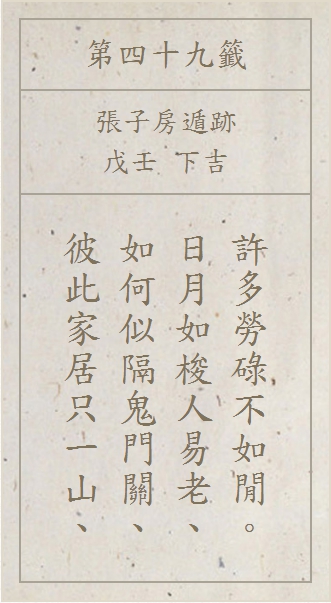 第四十九籤
張子房遁跡
戊壬 下吉
彼此家居只一山、
如何似隔鬼門關、
日月如梭人易老、
許多勞碌不如閒。